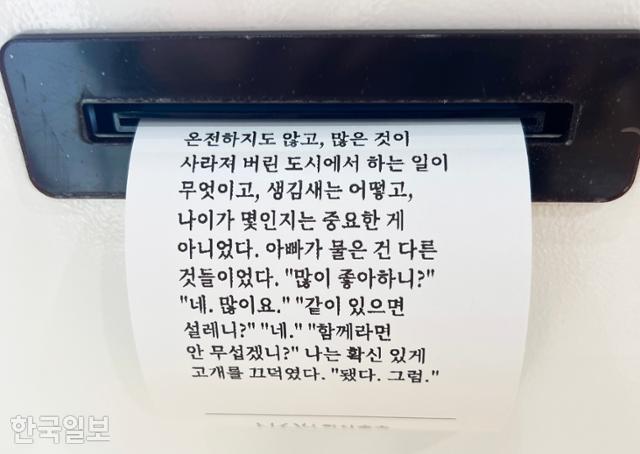 온전하지도 않고, 많은 것이
사라져 버린 도시에서 하는 일이
무엇이고, 생김새는 어떻고,
나이가 몇인지는 중요한 게
아니었다. 아빠가 물은 건 다른
것들이었다. "많이 좋아하니?"
"네. 많이요." "같이 있으면
설레니?" "네." "함께라면
안 무섭겠니?" 나는 확신 있게
고개를 끄덕였다. "됐다. 그럼."
한국일보